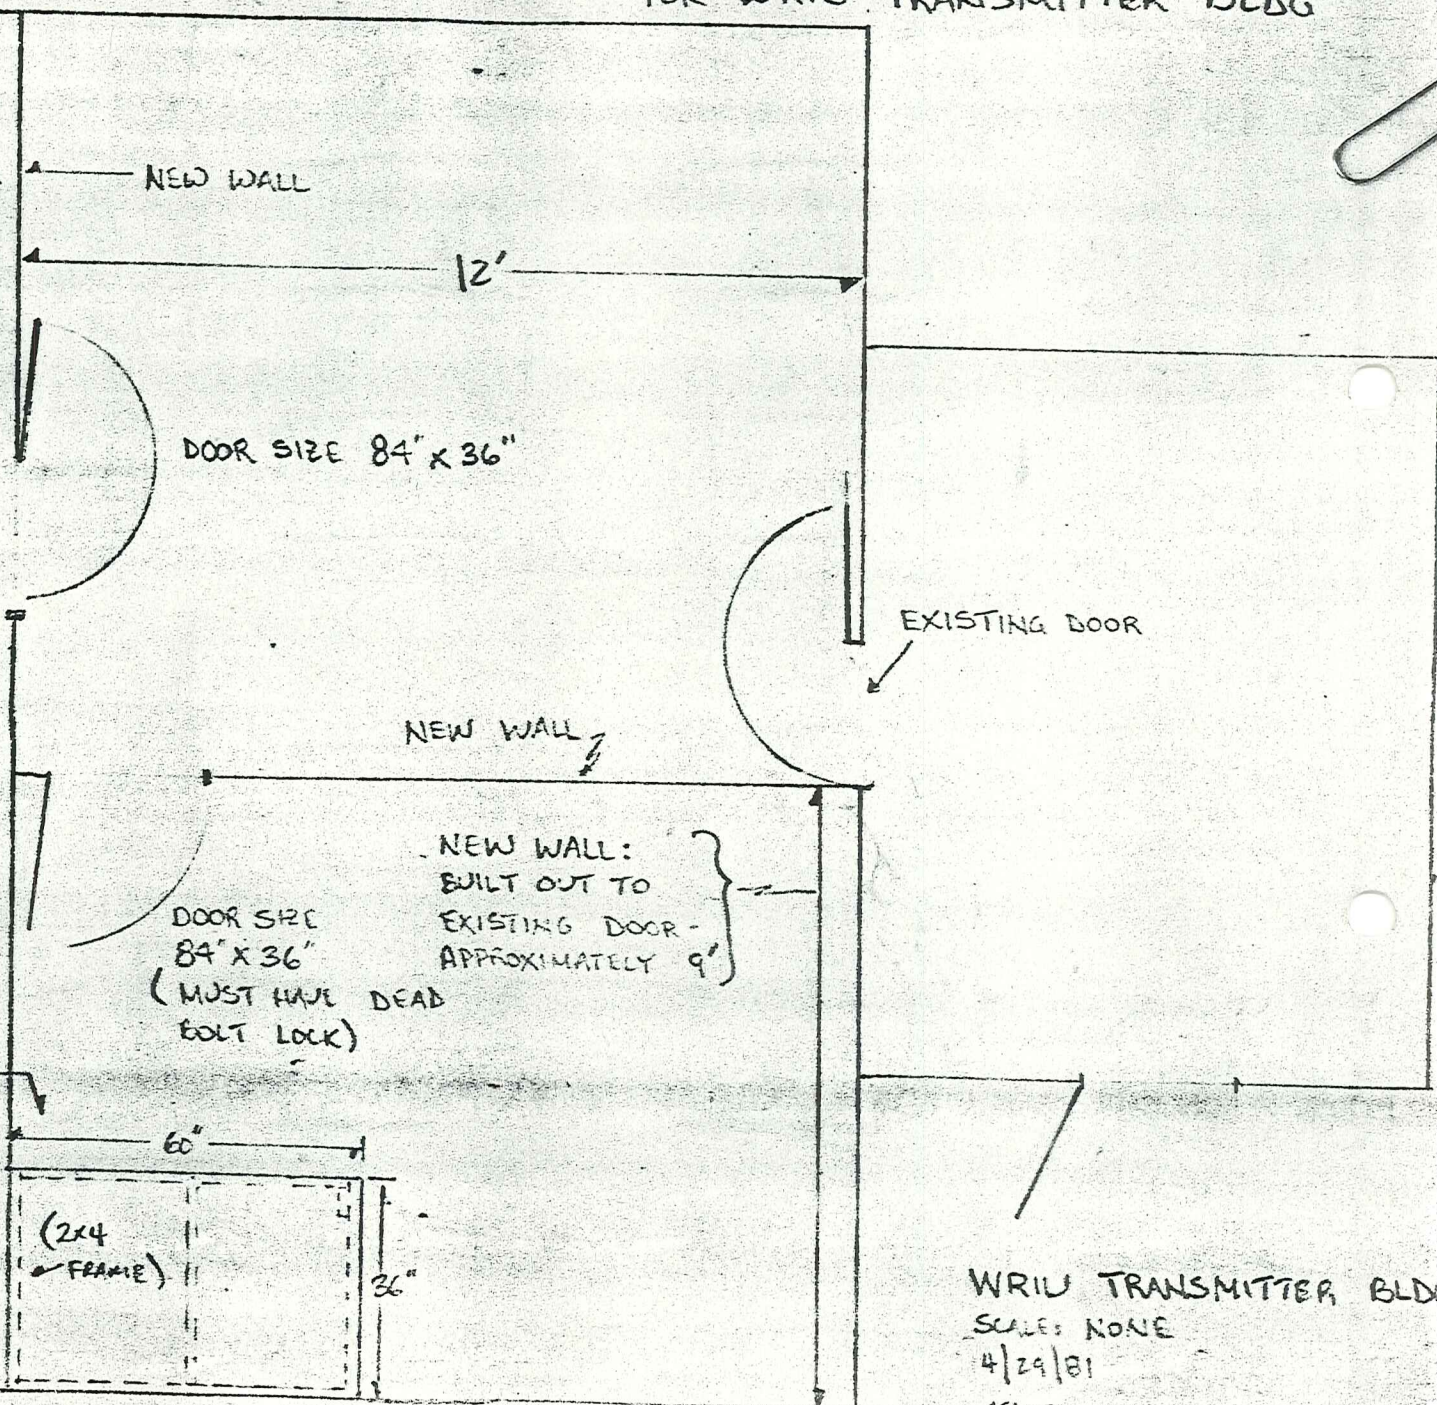 FOR WRIU TRANSMITTER BLDG
NEW WALL
12'
DOOR SIZE 84" x 36"
EXISTING DOOR
NEW WALL
NEW WALL:
BUILT OUT TO
EXISTING DOOR -
APPROXIMATELY 9'
DOOR SIZE
84" x 36"
(MUST HAVE DEAD
BOLT LOCK)
60"
(2x4
FRAME)
36"
WRIU TRANSMITTER BLD
SCALE: NONE
4/29/81